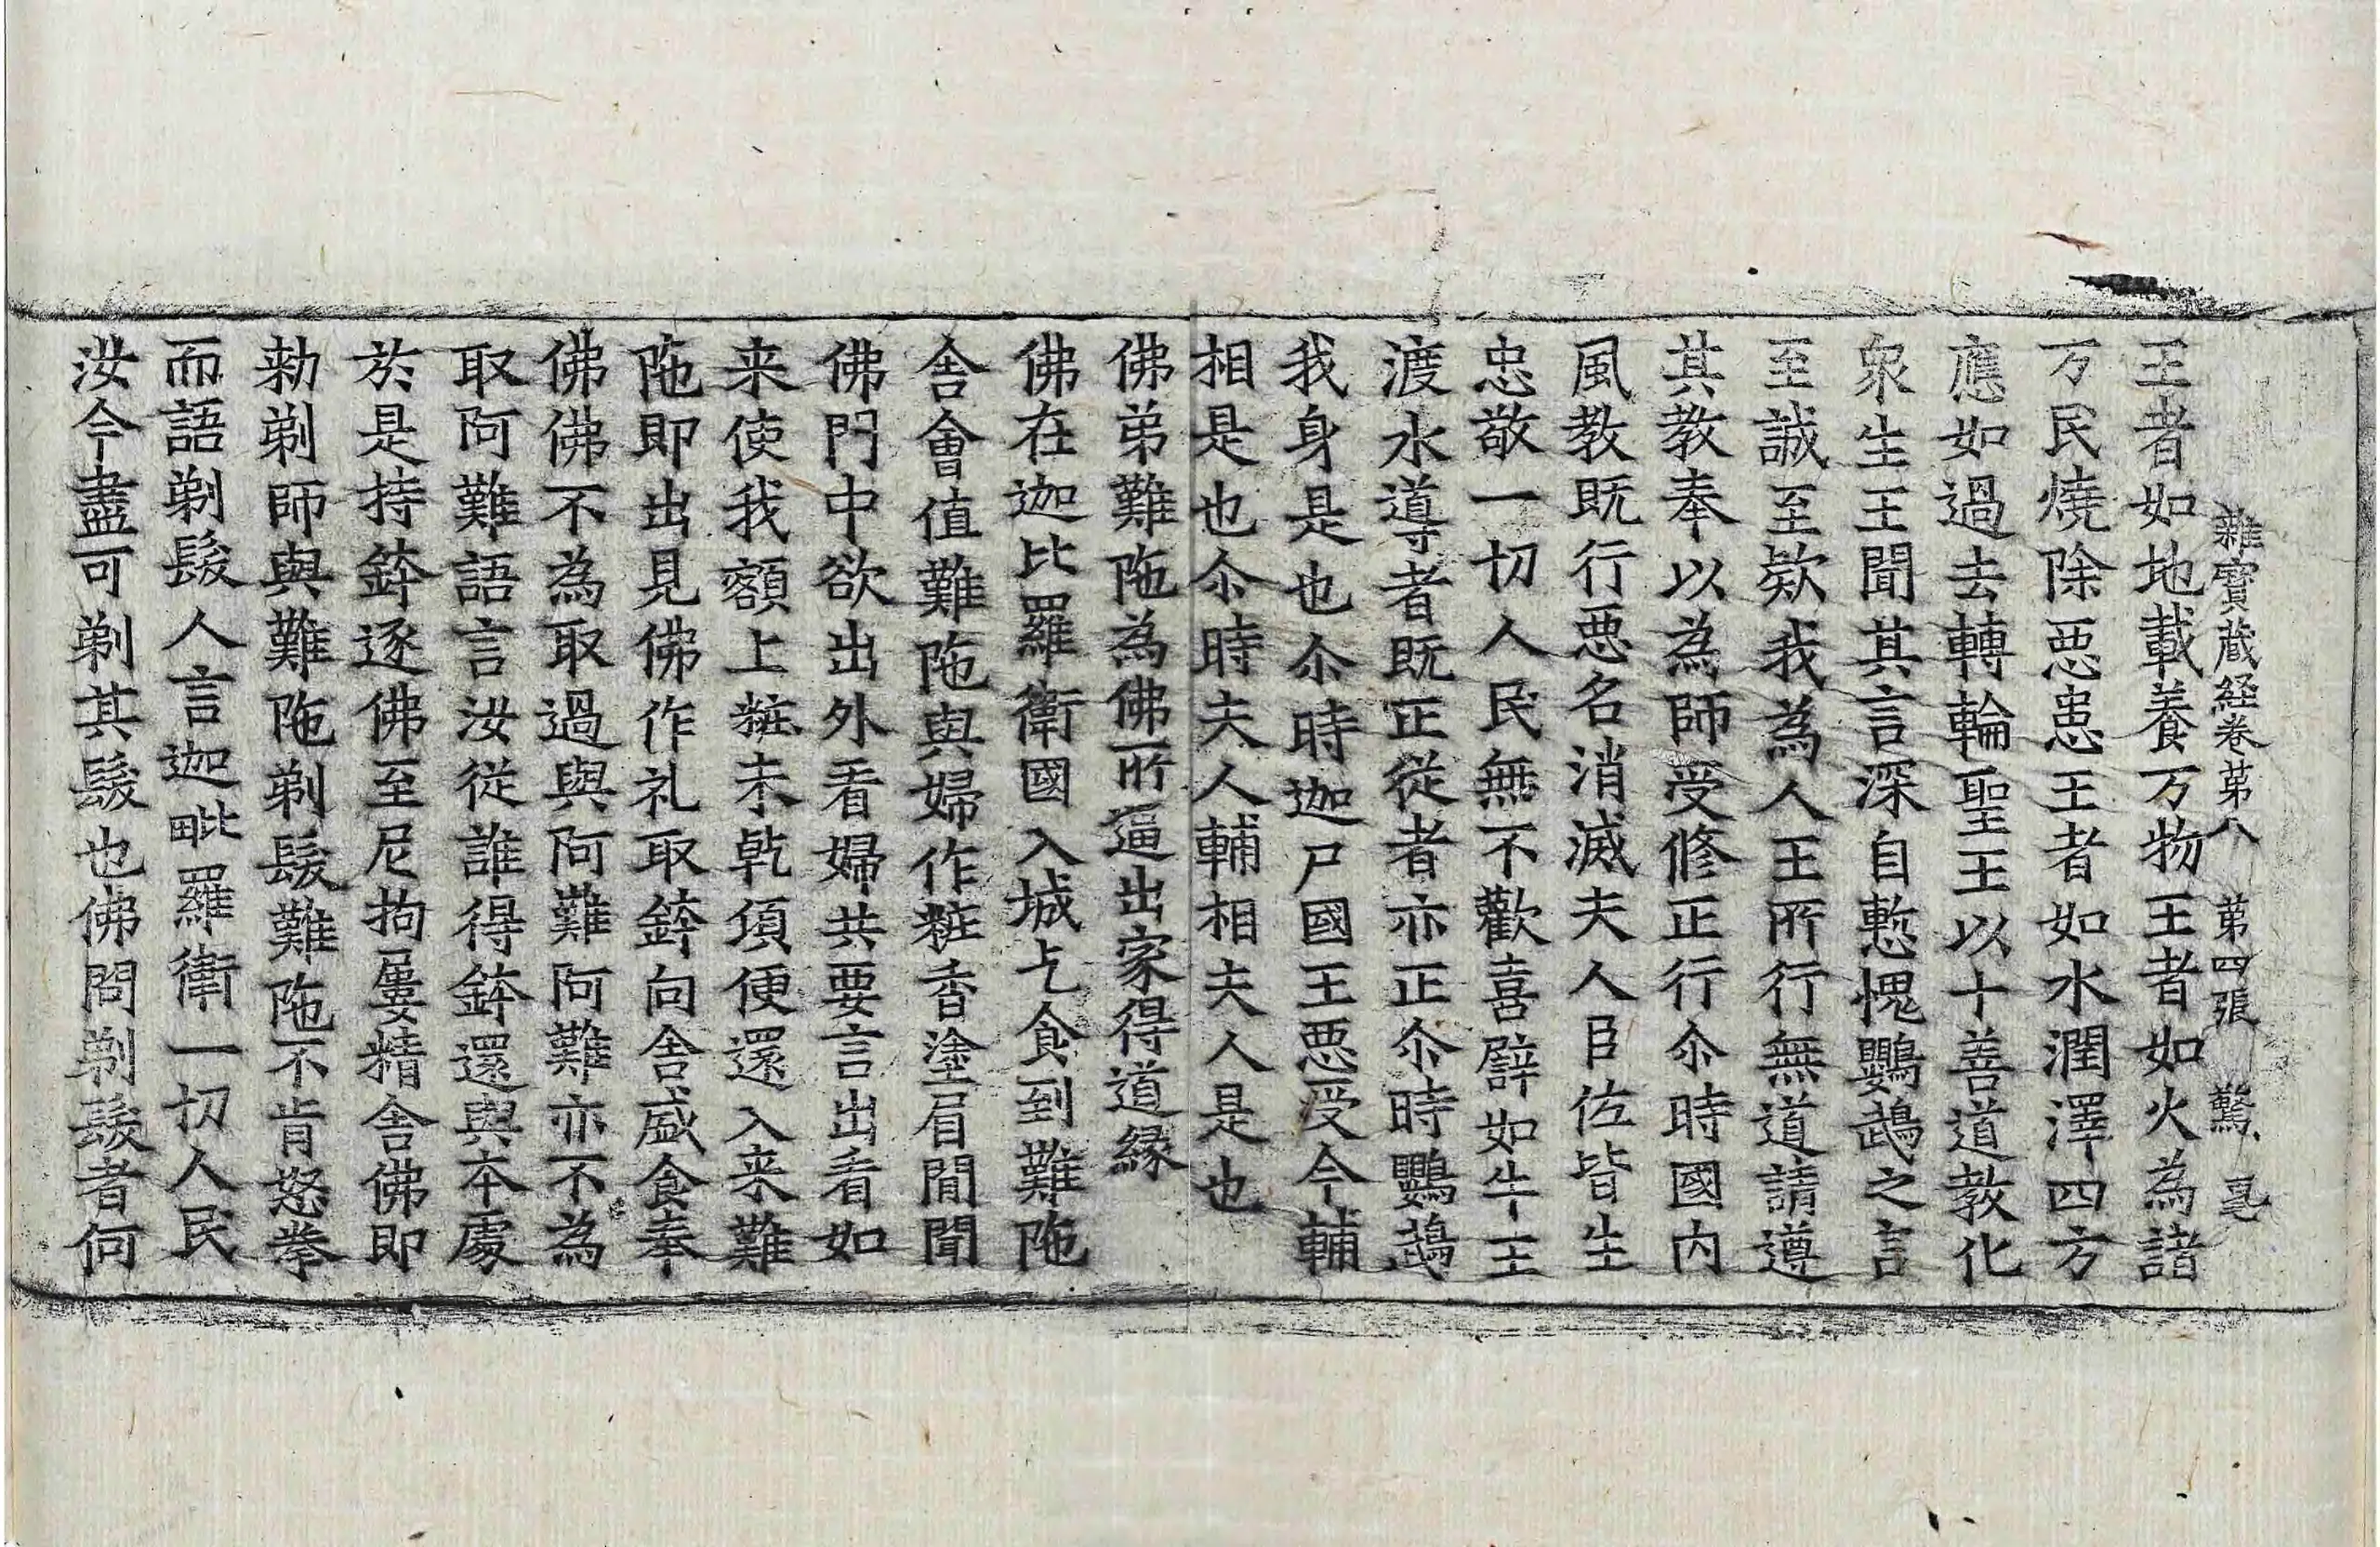 雜寶蔵経卷苐八 第四張 驚
王者如地載養万物王者如火為諸
万民燒除惡患王者如水潤澤四方
應如過去轉輪聖王以十善道教化
衆生王聞其言深自慙愧鸚鵡之言
至誠至欵我為人王所行無道請遵
其教奉以為師受修正行尒時國内
風教既行惡名消滅夫人臣佐皆生
忠敬一切人民無不歡喜譬如牛王
渡水導者既正從者亦正尒時鸚鵡
我身是也尒時迦尸國王惡受今輔
相是也尒時夫人輔相夫人是也
佛弟難陁為佛所逼出家得道緣
佛在迦比羅衛國入城乞食到難陁
舍會值難陁與婦作粧香塗眉間聞
佛門中欲出外看婦共要言出看如
来使我額上粧未乾頃便還入来難
陁即出見佛作礼取鉢向舍盛食奉
佛佛不為取過與阿難阿難亦不為
取阿難語言汝從誰得鉢還與本處
於是持鉢逐佛至尼拘屢精舍佛即
勑剃師與難陁剃髮難陁不肯怒拳
而語剃髮人言迦毗羅衛一切人民
汝今盡可剃其髮也佛問剃髮者何